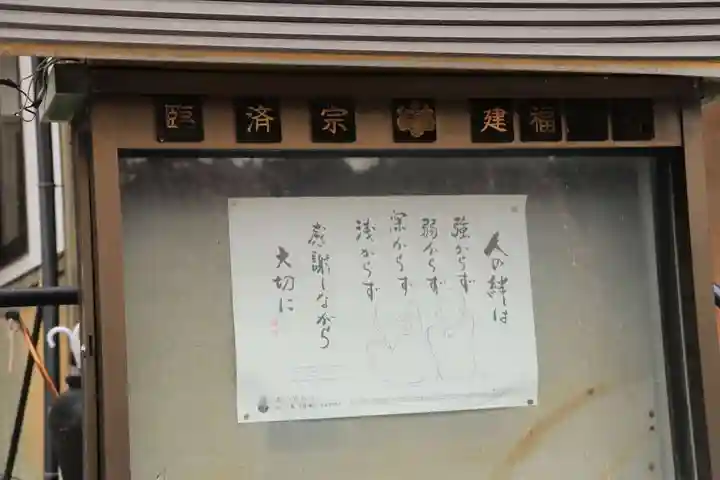 臨済宗 建福
人の絆は
強からず
弱からず
深からず
浅からず
感謝しながら
大切に